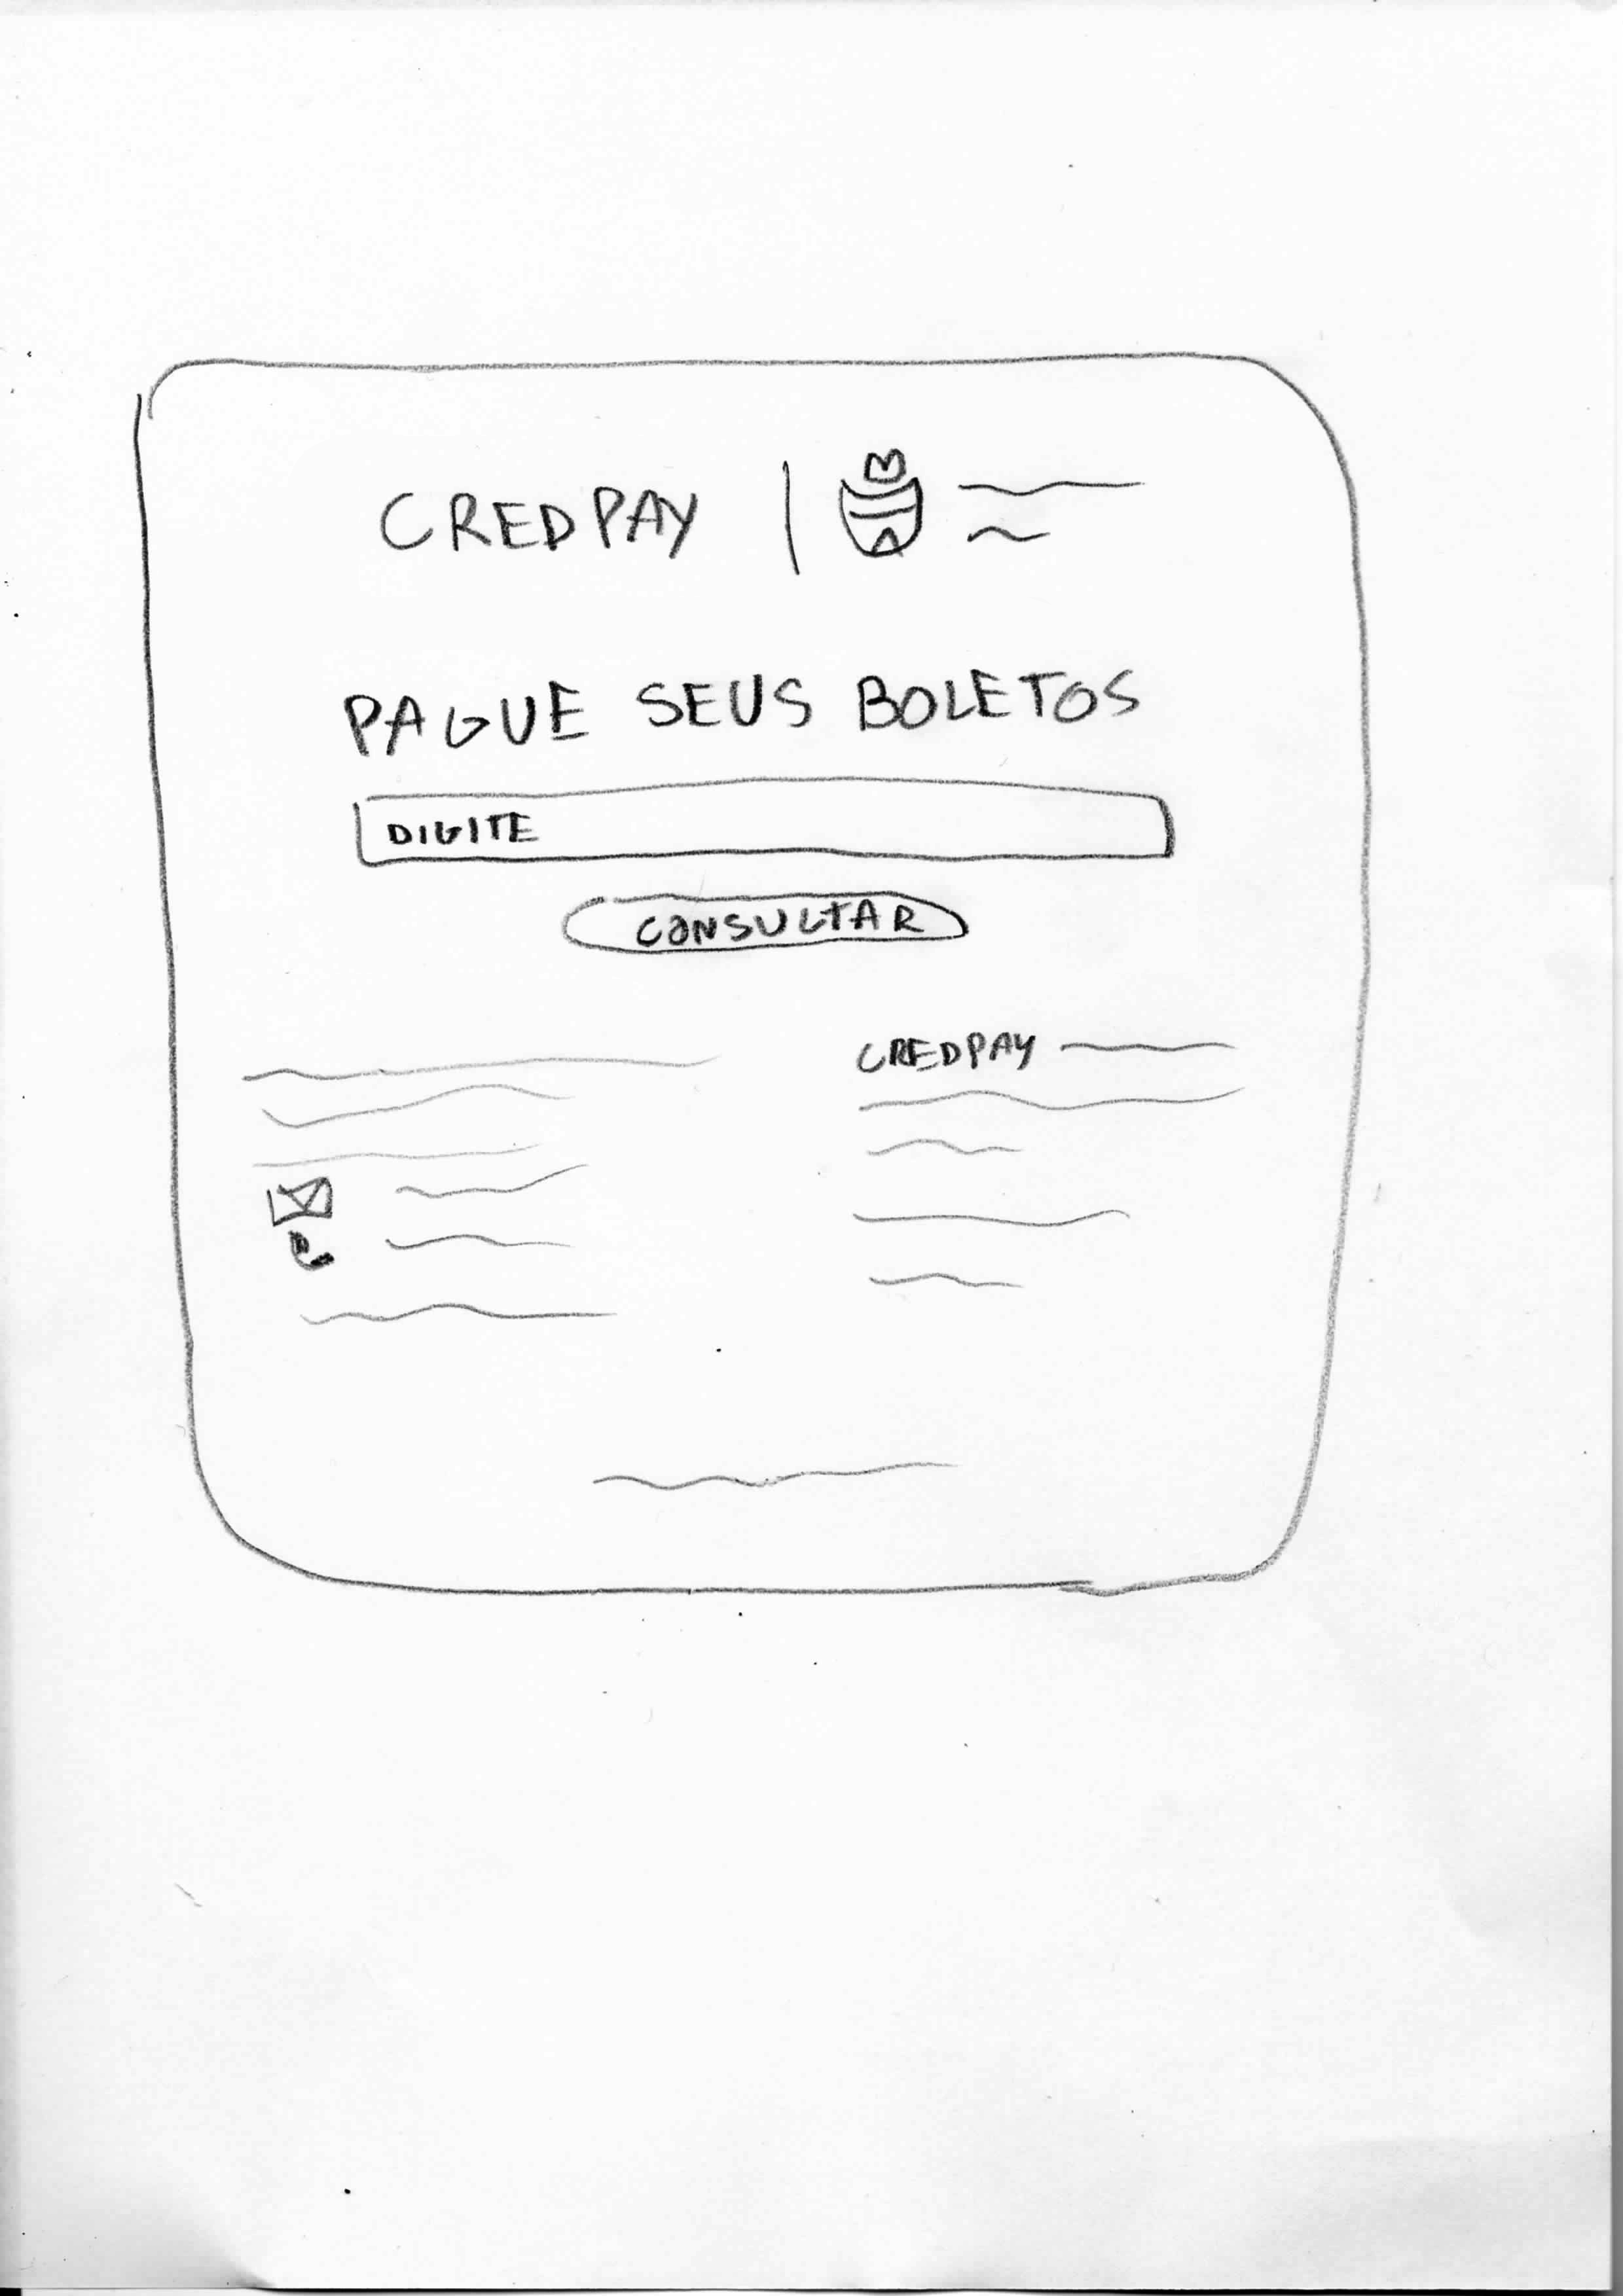 CREDPAY
PAGUE SEUS BOLETOS
DIGITE
CONSULTAR
CREDPAY